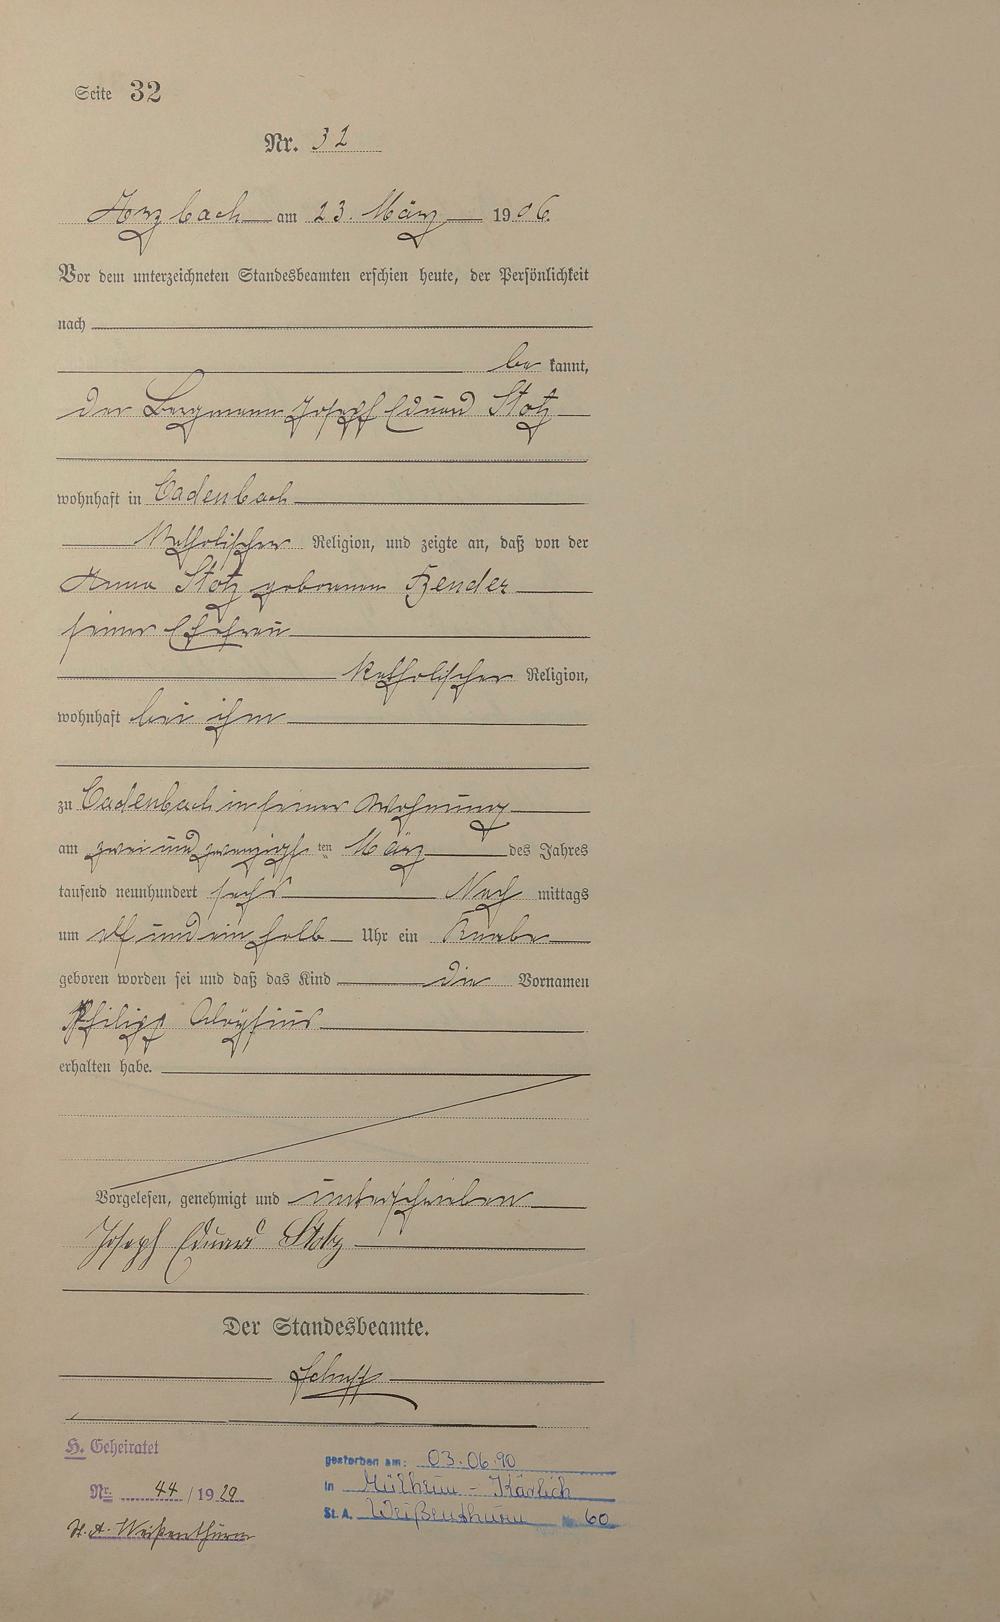 Seite 32
Nr. 32
Arzbach am 23. März 1906.
Vor dem unterzeichneten Standesbeamten erschien heute, der Persönlichkeit
nach
be kannt,
der Bergmann Joseph Eduard Stotz
wohnhaft in Cadenbach
katholischer Religion, und zeigte an, daß von der
Anna Stotz geborenen Bender
seiner Ehefrau
katholischer Religion,
wohnhaft bei ihm
zu Cadenbach in seiner Wohnung
am zwei und zwanzigsten März des Jahres
tausend neunhundert sechs Nach mittags
um elf und ein halb Uhr ein Knabe
geboren worden sei und daß das Kind die Vornamen
Philipp Aloysius
erhalten habe.
Vorgelesen, genehmigt und unterschrieben
Joseph Eduard Stotz
Der Standesbeamte.
H. Geheiratet
gestorben am: 03.06.90
Nr. 44 / 1929
in Mülheim - Kärlich
St. A. Weißenthurm
St. A. Weißenthurm Nr. 60